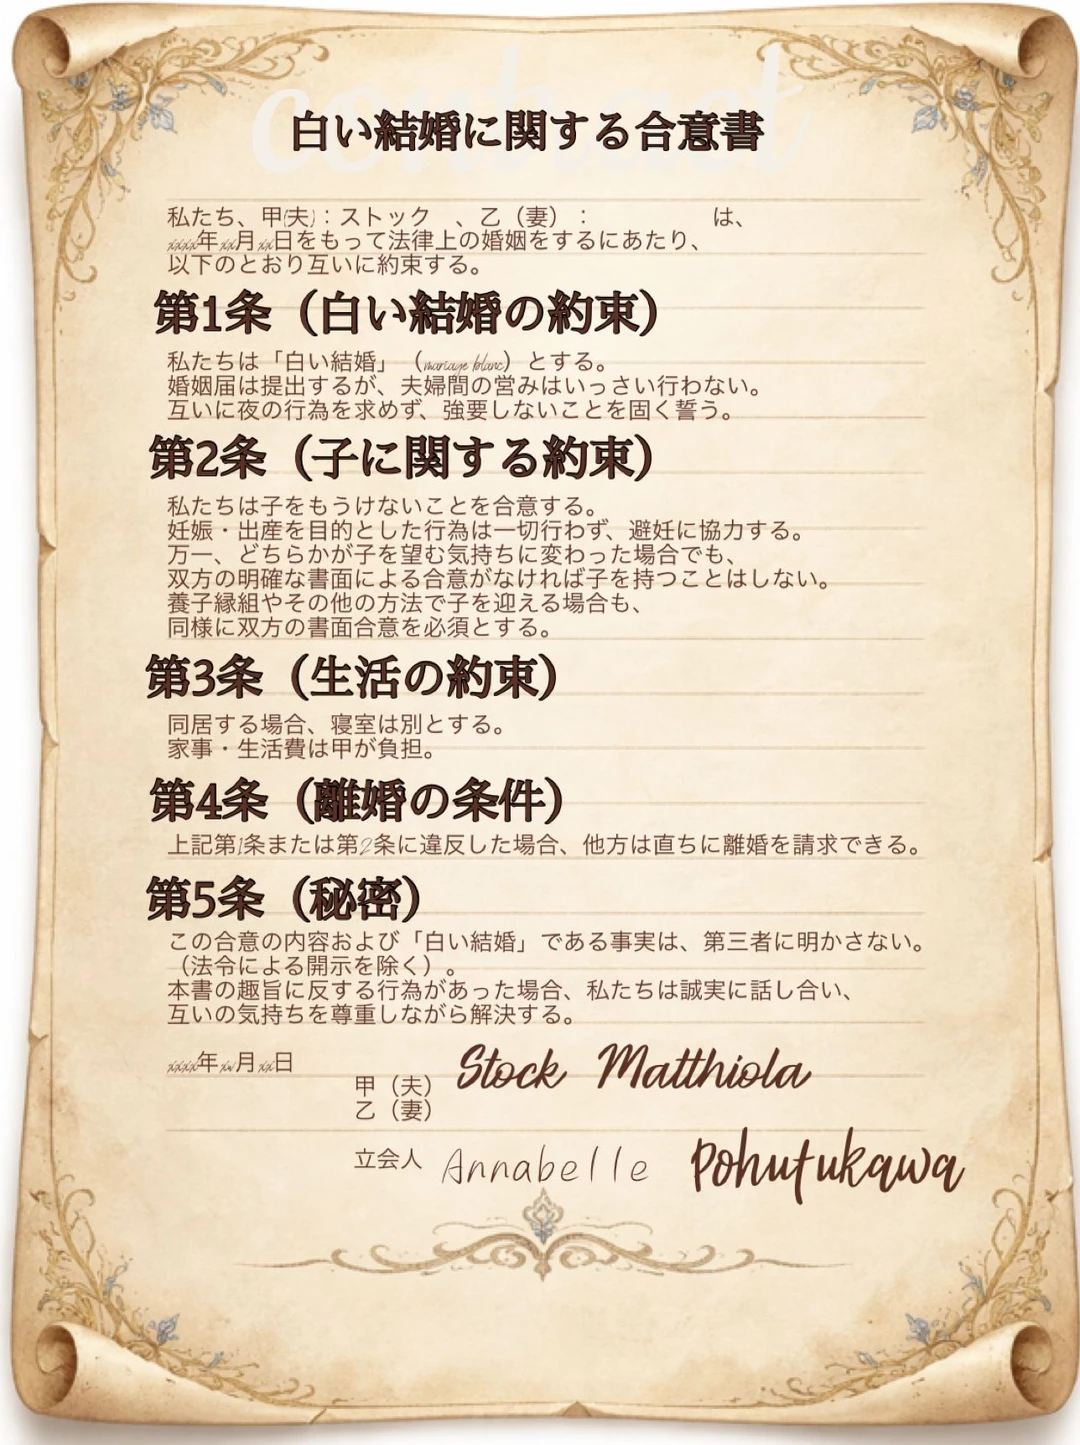 contract
白い結婚に関する合意書
私たち、甲(夫)：ストック　、乙（妻）：　　　　　は、
xxxx年xx月xx日をもって法律上の婚姻をするにあたり、
以下のとおり互いに約束する。
第1条（白い結婚の約束）
私たちは「白い結婚」（mariage blanc）とする。
婚姻届は提出するが、夫婦間の営みはいっさい行わない。
互いに夜の行為を求めず、強要しないことを固く誓う。
第2条（子に関する約束）
私たちは子をもうけないことを合意する。
妊娠・出産を目的とした行為は一切行わず、避妊に協力する。
万一、どちらかが子を望む気持ちに変わった場合でも、
双方の明確な書面による合意がなければ子を持つことはしない。
養子縁組やその他の方法で子を迎える場合も、
同様に双方の書面合意を必須とする。
第3条（生活の約束）
同居する場合、寝室は別とする。
家事・生活費は甲が負担。
第4条（離婚の条件）
上記第1条または第2条に違反した場合、他方は直ちに離婚を請求できる。
第5条（秘密）
この合意の内容および「白い結婚」である事実は、第三者に明かさない。
（法令による開示を除く）。
本書の趣旨に反する行為があった場合、私たちは誠実に話し合い、
互いの気持ちを尊重しながら解決する。
xxxx年xx月xx日
甲（夫） Stock Matthiola
乙（妻）
立会人 Annabelle Pohutukawa